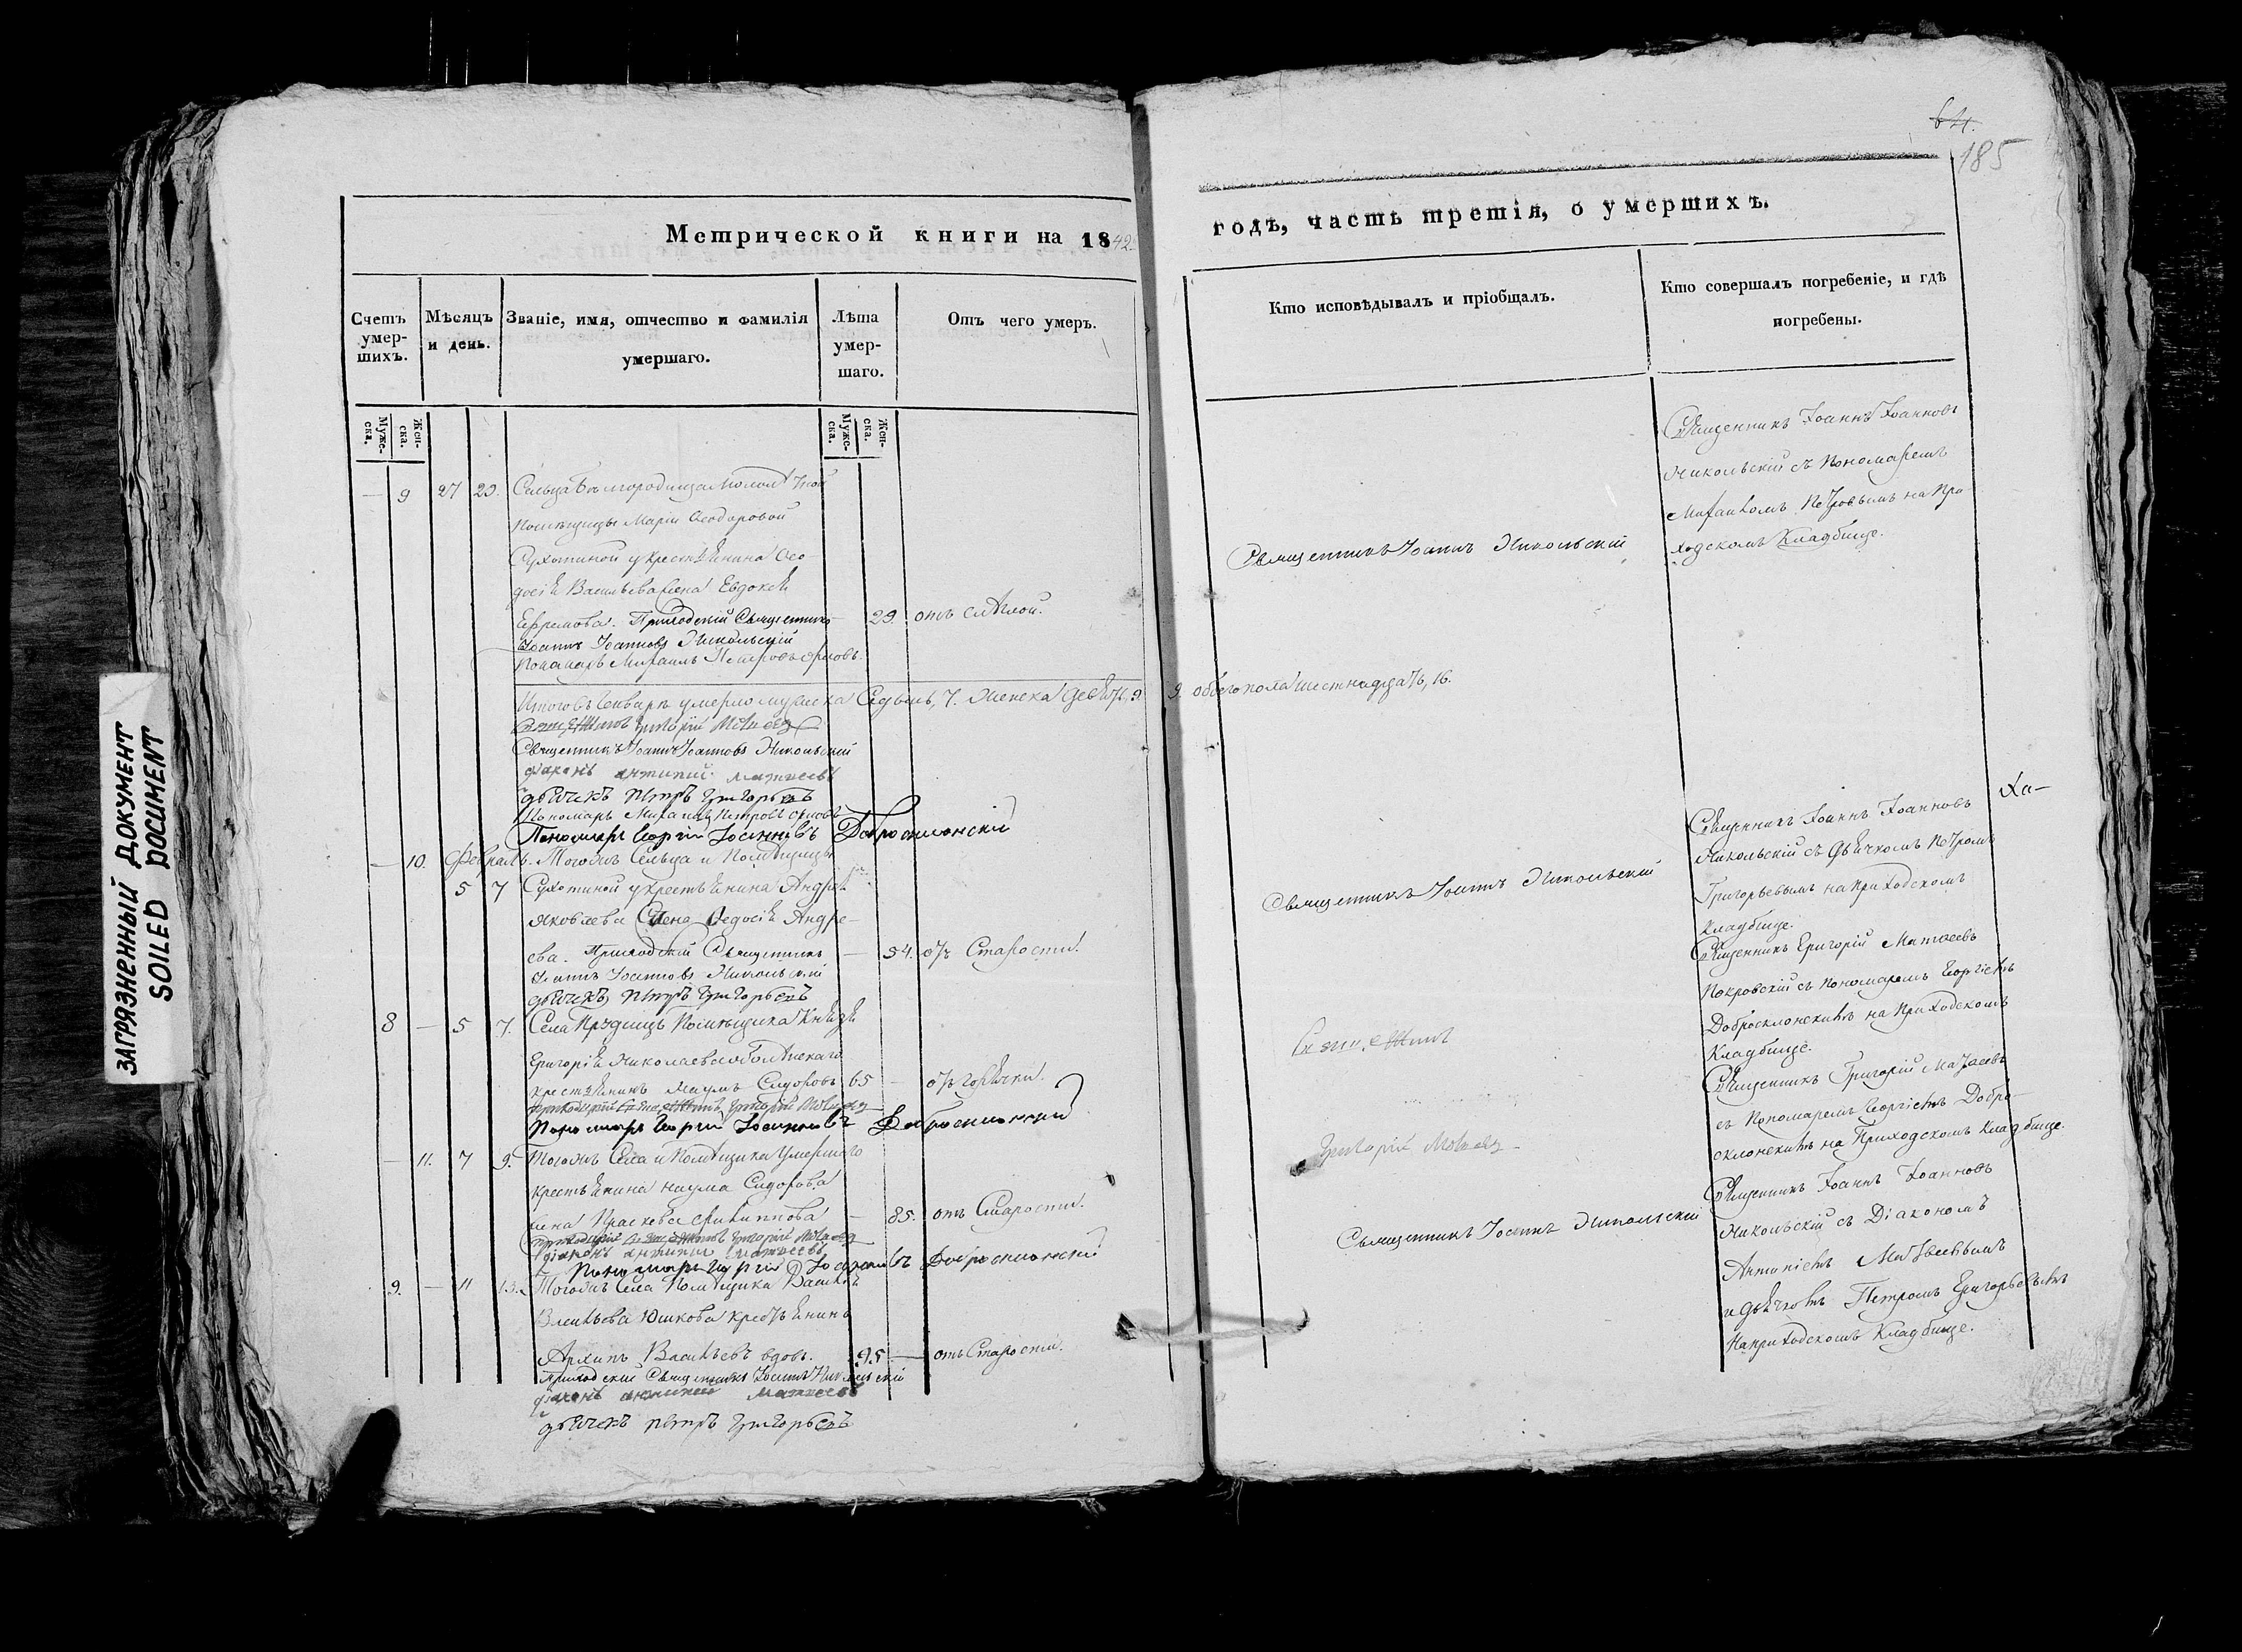 64.
185
Метрической книги на 1842.
годъ, часть третія, о умершихъ.
Счетъ умер-шихъ.
Мѣсяцъ и день.
Званіе, имя, отчество и фамилія умершаго.
Лѣта умер-шаго.
Отъ чего умеръ.
Кто исповѣдывалъ и пріобщалъ.
Кто совершалъ погребеніе, и гдѣ погребены.
Муже-ска.
Жен-ска.
Муже-ска.
Жен-ска.
— 9 27 29. Сельца
помѣщицы Маріи Ѳеодоровой
Сухотиной у крестьянина Ѳео-
досія Васильева жена Евдокія
Ефремова. Приходскій Священникъ — 29 отъ
Іоаннъ Іоанновъ Никольскій
Пономарь Михаилъ Петровъ
Священникъ Іоаннъ Никольскій
Священникъ Іоаннъ Іоанновъ
Никольскій съ Пономаремъ
Михаиломъ Петровымъ на При
ходскомъ Кладбище.
Итого въ Генварѣ умерло мужеска Седмь, 7. женска девять, 9 9. обоего пола шестнадцать, 16.
Григорій
Священникъ Іоаннъ Іоанновъ Никольскій
діаконъ антипий матвеевъ
дьячекъ петръ григорьевъ
Пономарь Михаилъ Петровъ
Пономарь Георгій Іоанновъ Добросклонскій
— 10. Февраль. Тогожъ Сельца и Помѣщицы
5 7 Сухотиной у крестьянина Андрея
Яковлева жена Ѳедосія Андре-
ева. Приходскій Священникъ — 54. отъ Старости.
Іоаннъ Іоанновъ Никольскій
дьячекъ петръ григорьевъ
Священникъ Іоаннъ Никольскій
Священникъ Іоаннъ Іоанновъ Ха-
Никольскій съ Дьячкомъ Петромъ
Григорьевымъ на приходскомъ
кладбище.
8 — 5 7. Села Прудищъ Помѣщика Князя
Григорія Николаева Оболенскаго
крестьянинъ Наумъ Сидоровъ 65 — отъ горячки.
Пономарь Георгій Іоанновъ Добросклонскій
Священникъ Григорій Матвеевъ
Покровскій съ Пономаремъ Георгіемъ
Добросклонскимъ на Приходскомъ
Кладбище.
— 11. 7 9. Тогожъ Села и Помѣщика Умершего
крестьянина наума Сидорова
жена Прасковья Филиппова — 85. отъ Старости.
діаконъ антипий матвеевъ
Пономарь Георгій Іоанновъ Добросклонскій
Григорій
Священникъ Григорій Матвеевъ
съ Пономаремъ Георгіемъ Добро-
склонскимъ на Приходскомъ Кладбище.
9. — 11 13. Тогожъ Села Помѣщика Василія
Васильева Юшкова крестьянинъ
Архипъ Васильевъ вдовъ. 95 — отъ Старости.
Приходскій Священникъ Іоаннъ Никольскій
діаконъ антипий матвеевъ
дьячекъ петръ григорьевъ
Священникъ Іоаннъ Никольскій
Священникъ Іоаннъ Іоанновъ
Никольскій съ Діакономъ
Антипіемъ Матвеевымъ
и дьячкомъ Петромъ Григорьевымъ
На приходскомъ Кладбище.
ЗАГРЯЗНЕННЫЙ ДОКУМЕНТ
SOILED DOCUMENT